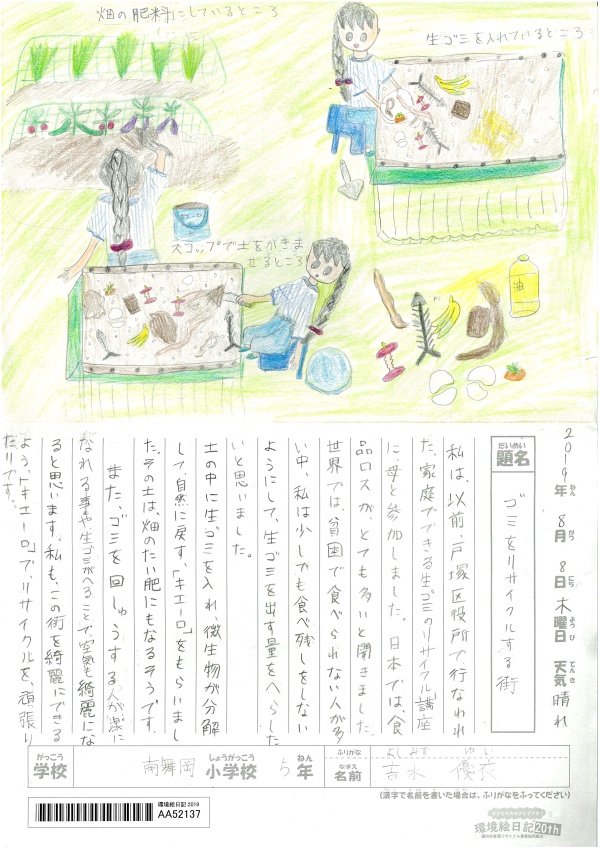 畑の肥料にしているところ
生ゴミを入れているところ
スコップで土をかきま
ぜるところ
油
2019年ねん 8月がつ 8日にち 木曜日ようび 天気てんき 晴れ
題名だいめい
ゴミをリサイクルする街
私は、以前、戸塚区役所で行なわれ
た、家庭でできる生ゴミのリサイクル講座
に、母と参加しました。日本では、食
品ロスが、とても多いと聞きました。
世界では、貧困で食べられない人が多
い中、私は少しでも食べ残しをしない
ようにして、生ゴミを出す量をへらした
いと思いました。
土の中に生ゴミを入れ、微生物が分解
して、自然に戻す、「キエーロ」をもらいまし
た。その土は、畑のたい肥にもなるそうです。
また、ゴミを回しゅうする人が楽に
なれる事や、生ゴミがへることで、空気も綺麗にな
ると思います。私も、この街を綺麗にできる
よう、「キエーロ」で、リサイクルを、頑張り
たいです。
学校がっこう 南舞岡 小学校しょうがっこう 5年ねん
ふりがな よしみず ゆい
名前なまえ 吉水 優衣
(漢字で名前を書いた場合は、ふりがなをふってください)
環境絵日記 2019
AA52137
環境絵日記 20th